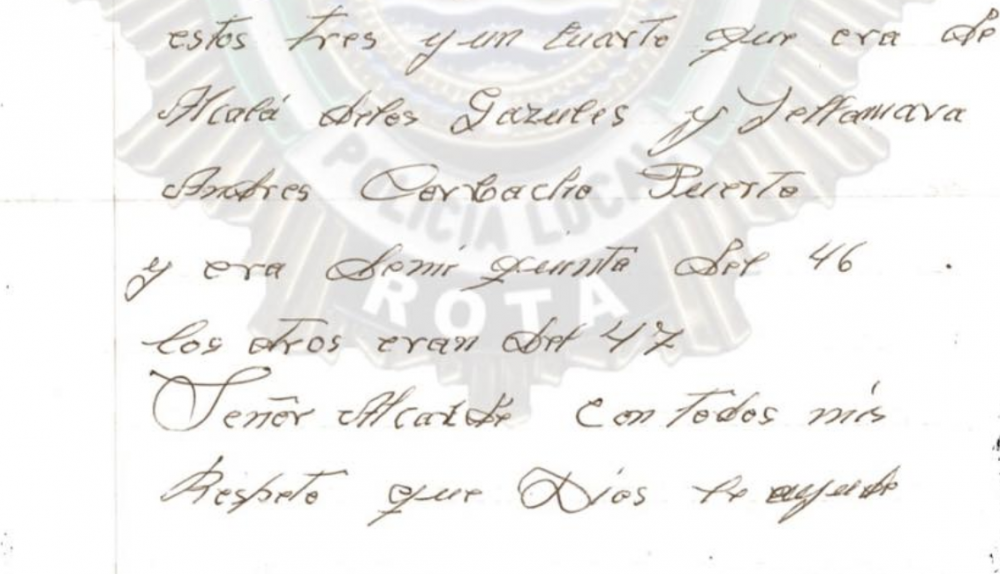 estos tres y un cuarto que era de
Alcalá delos Gazules y Sellamava
Andres Corbacho Puerto
y era demi quinta del 46
los otros eran del 47
Señor Alcalde con todos mis
Respeto que Dios le ayude
POLICÍA LOCAL
ROTA